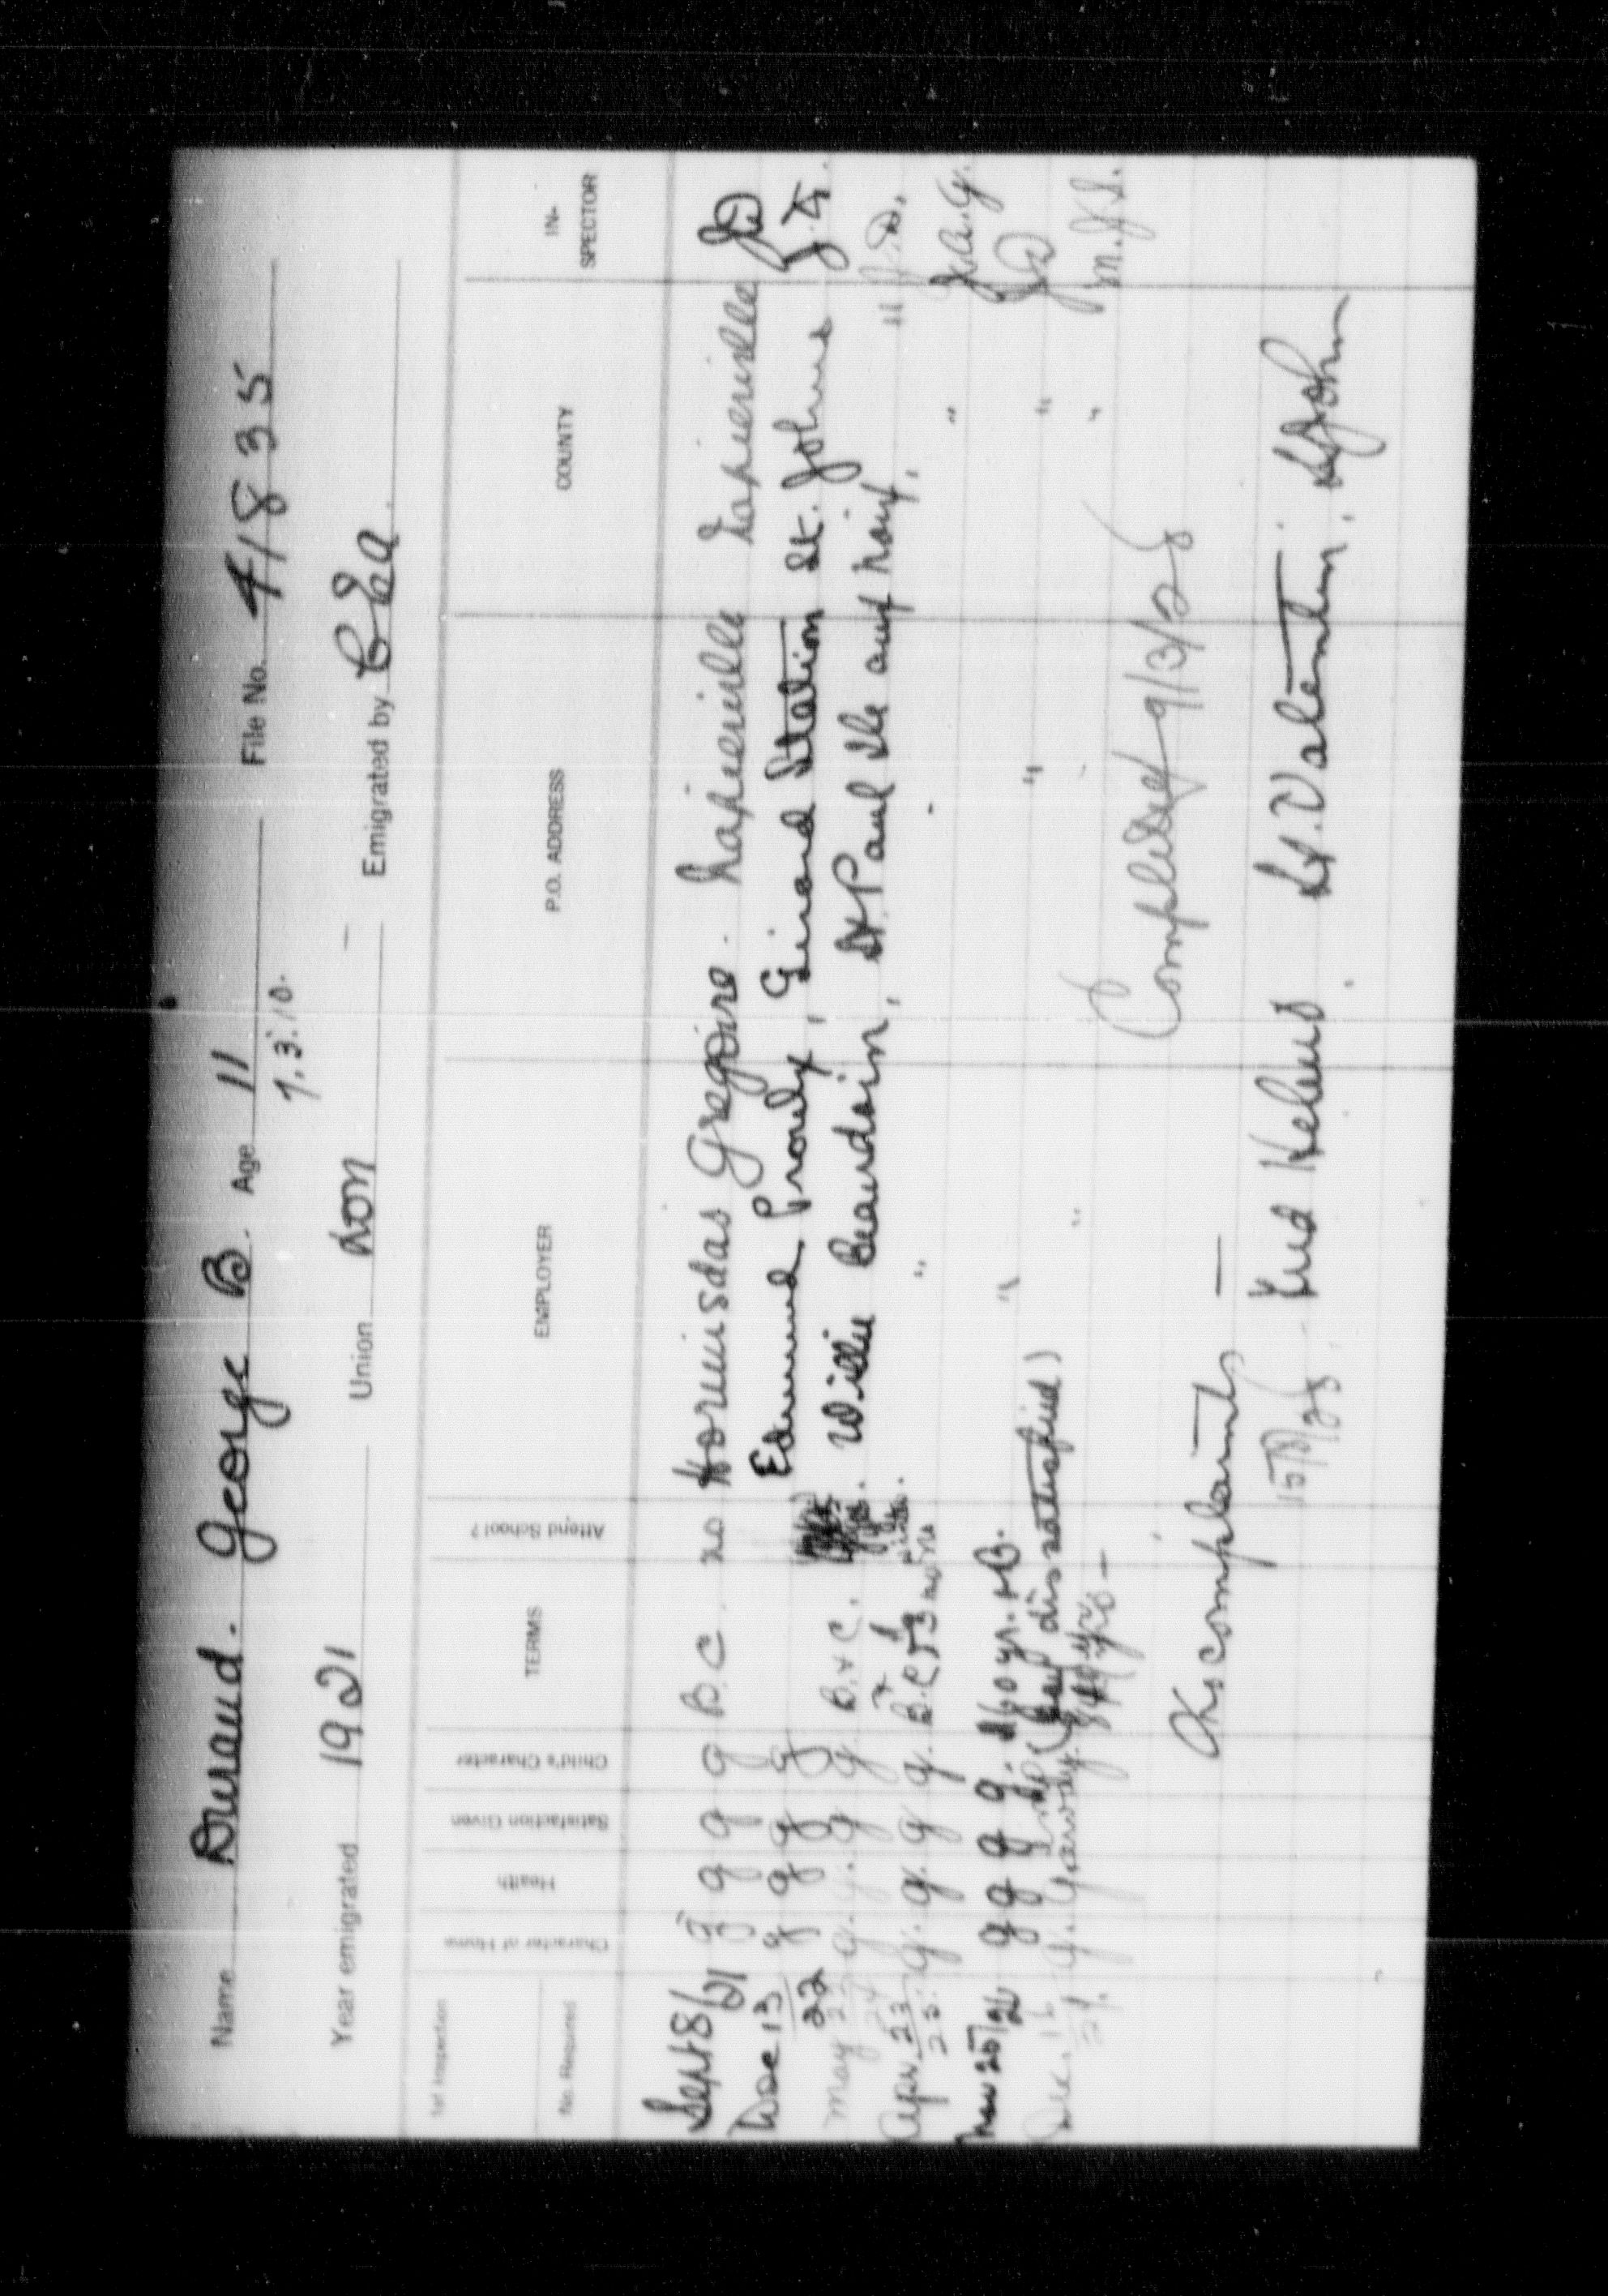 Name Durand. George B. Age 11 File No. 41835
1.3.10.
Year emigrated 1921 Union Lon Emigrated by C.E.A.
1st Inspection
No. Required
Character of Home Health Satisfaction Given Child's Character TERMS Attend School? EMPLOYER P.O. ADDRESS COUNTY IN-SPECTOR
Sept 8/21 g g g g B.C. no Hormisdas Gregoire. Napierville Napierville JD
Dec 13/22 g g g g Edmund Proulx, Girard Station St. Johns
May g. g. g g B. & C. yes. Willie Beaudoin, St. Paul Ile aux Noix, " J.D.
Apr. 23 g. g. g g. " "
Nov 25/26 g g g g. $60 yr. + B. " " "
g g g (boy dissatisfied) " "
Dec. g. M.J.S.
Completed 9/3/28
As complaints —
St. Valentin, St John